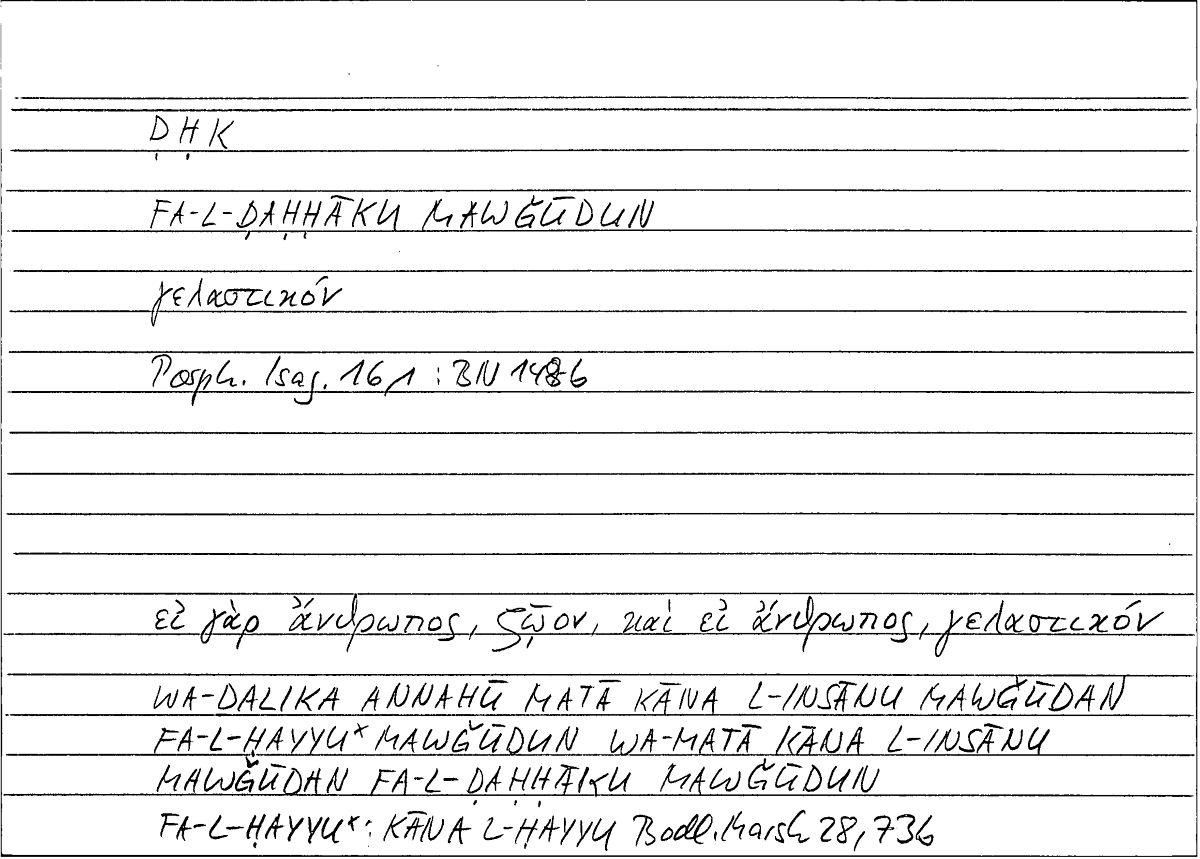 ḌḤK
FA-L-ḌAḤḤĀKU MAWǦŪDUN
γελαστικόν
Porph. Isag. 16,1 : BN 148b
εἰ γὰρ ἄνθρωπος, ζῷον, καὶ εἰ ἄνθρωπος, γελαστικόν
WA-DALIKA ANNAHŪ MATĀ KĀNA L-INSĀNU MAWǦŪDAN
FA-L-ḤAYYU* MAWǦŪDUN WA-MATĀ KĀNA L-INSĀNU
MAWǦŪDAN FA-L-ḌAḤḤĀKU MAWǦŪDUN
FA-L-ḤAYYU*: KĀNA L-ḤAYYU Bodl. Marsh 28,736